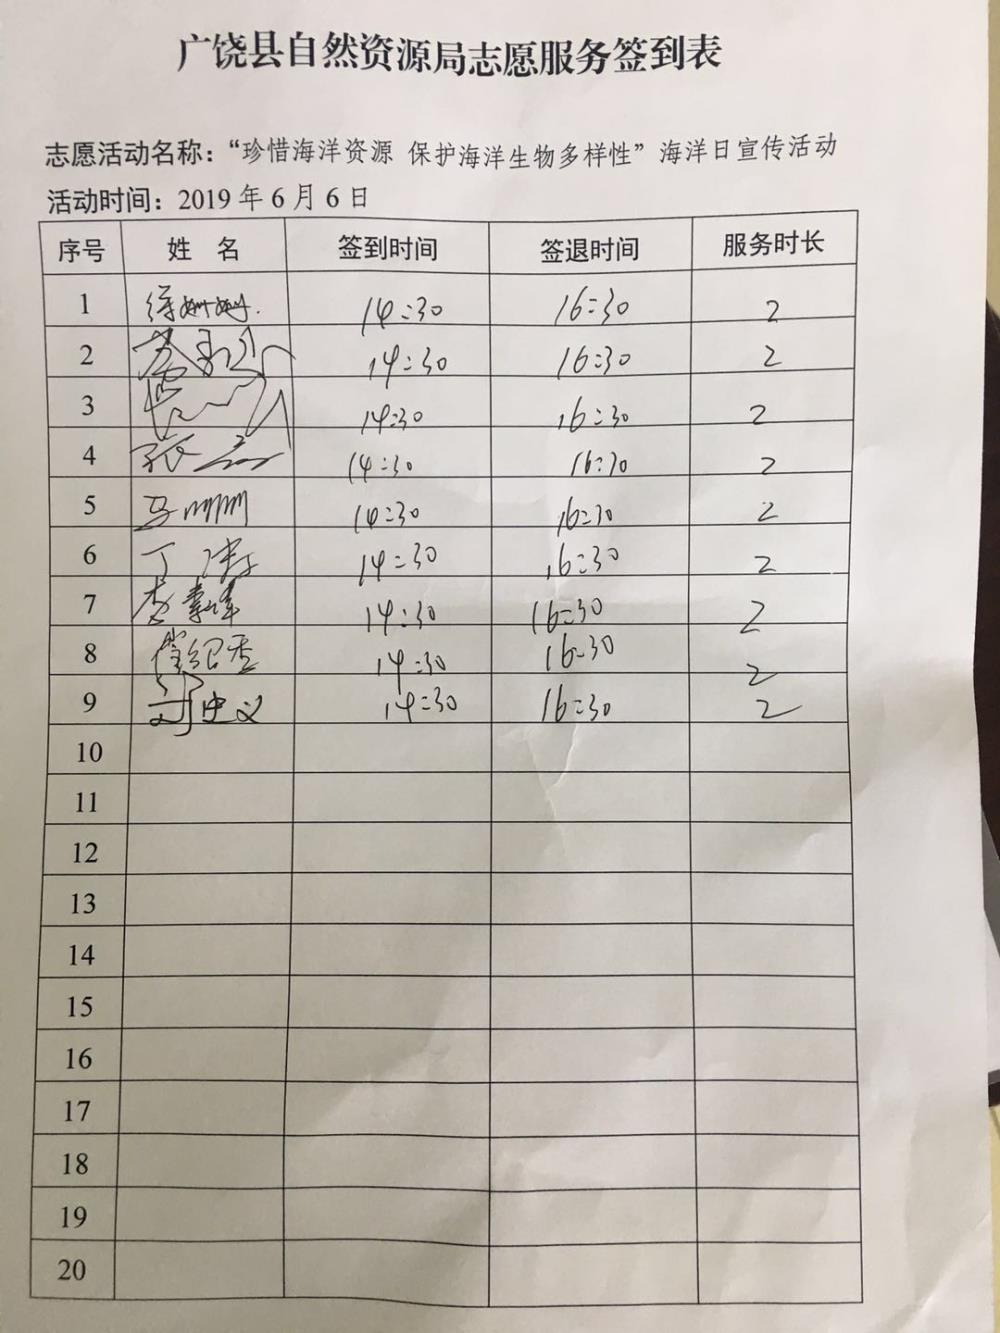 广饶县自然资源局志愿服务签到表
志愿活动名称：“珍惜海洋资源 保护海洋生物多样性”海洋日宣传活动
活动时间：2019 年 6 月 6 日
序号 姓 名 签到时间 签退时间 服务时长
1 徐姗姗 14:30 16:30 2
2 14:30 16:30 2
3 14:30 16:30 2
4 张 14:30 16:30 2
5 马 14:30 16:30 2
6 丁涛 14:30 16:30 2
7 李 14:30 16:30 2
8 崔绍 14:30 16:30 2
9 刘忠义 14:30 16:30 2
10
11
12
13
14
15
16
17
18
19
20